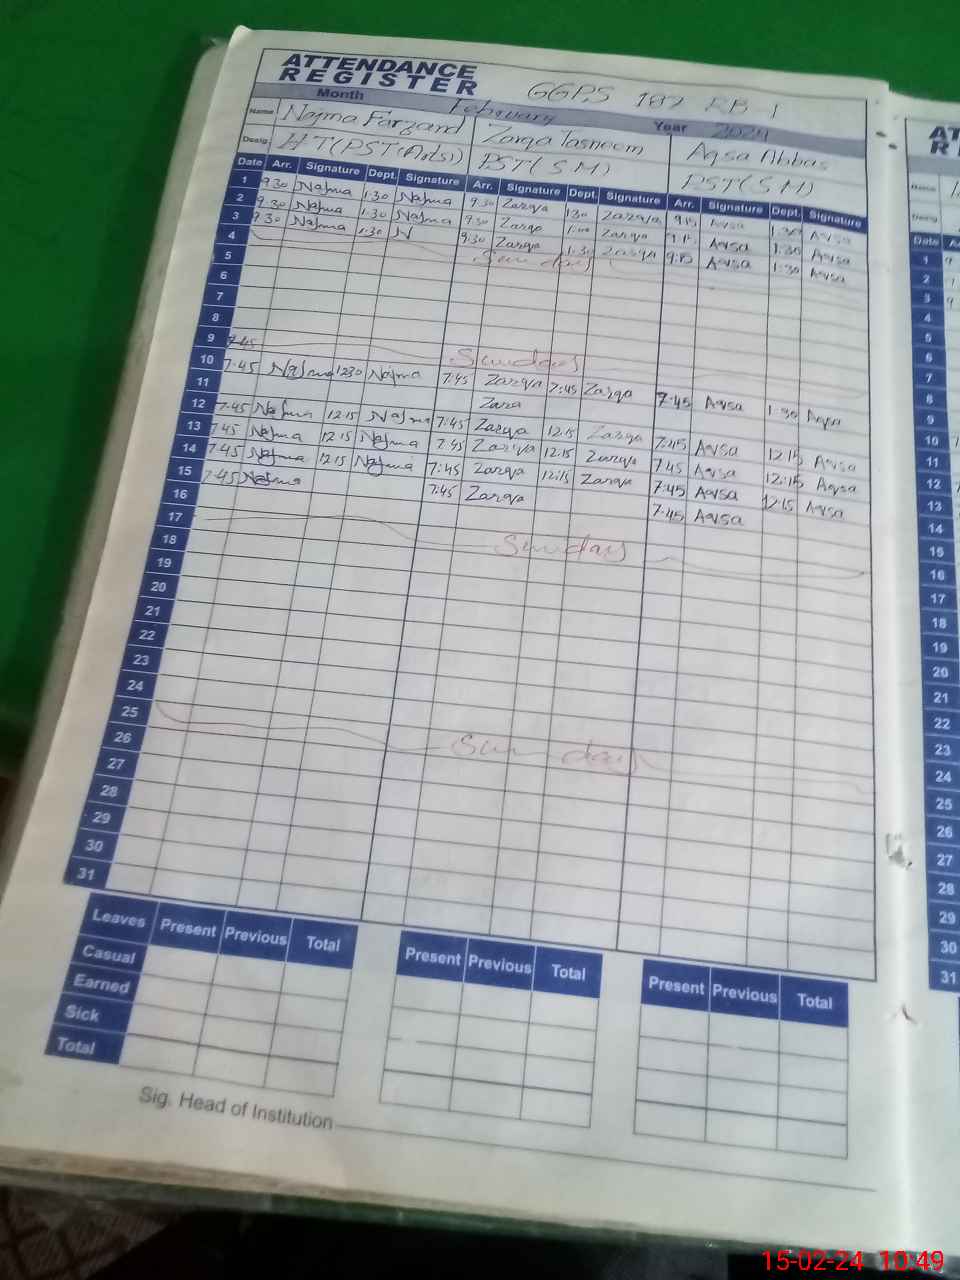 ATTENDANCE REGISTER GGPS 187 RB-1
Month February Year 2024
Name Najma Farzand Zarqa Tasneem Aqsa Abbas
Desig HT(PST(Arts)) PST(SM) PST(SM)
Date Arr. Signature Dept. Signature Arr. Signature Dept. Signature Arr. Signature Dept. Signature
1 9 30 Najma 1:30 Najma 9 30 Zarqa 130 Zarqa 9:15 Aqsa 1:30 Aqsa
2 9.30 Najma 1.30 Najma 9:30 Zarqa Zarqa 9:15 Aqsa 1:30 Aqsa
3 9 30 Najma 1:30 N 9:30 Zarqa 1:30 Zarqa 9:15 Aqsa 1:30 Aqsa
4 Sunday
5
6
7
8
9 7:45 Sunday
10 7.45 Najma 1230 Najma 7:45 Zarqa 7:45 Zarqa 7:45 Aqsa 1:30 Aqsa
11 Zara
12 7.45 Najma 12 15 Najma 7:45 Zarqa 12:15 Zarqa 7:45 Aqsa 12:15 Aqsa
13 7 45 Najma 12 15 Najma 7.45 Zarqa 12:15 Zarqa 7:45 Aqsa 12:15 Aqsa
14 7.45 Najma 12 15 Najma 7:45 Zarqa 12:15 Zarqa 7:45 Aqsa 12:15 Aqsa
15 7.45 Najma 7:45 Zarqa 7:45 Aqsa
16
17
18 Sunday
19
20
21
22
23
24
25 Sunday
26
27
28
29
30
31
Leaves Present Previous Total Present Previous Total Present Previous Total
Casual
Earned
Sick
Total
Sig. Head of Institution
AT
R
Name
Desig
Date A
1
2
3
4
5
6
7
8
9
10
11
12
13
14
15
16
17
18
19
20
21
22
23
24
25
26
27
28
29
30
31
15-02-24 10:49